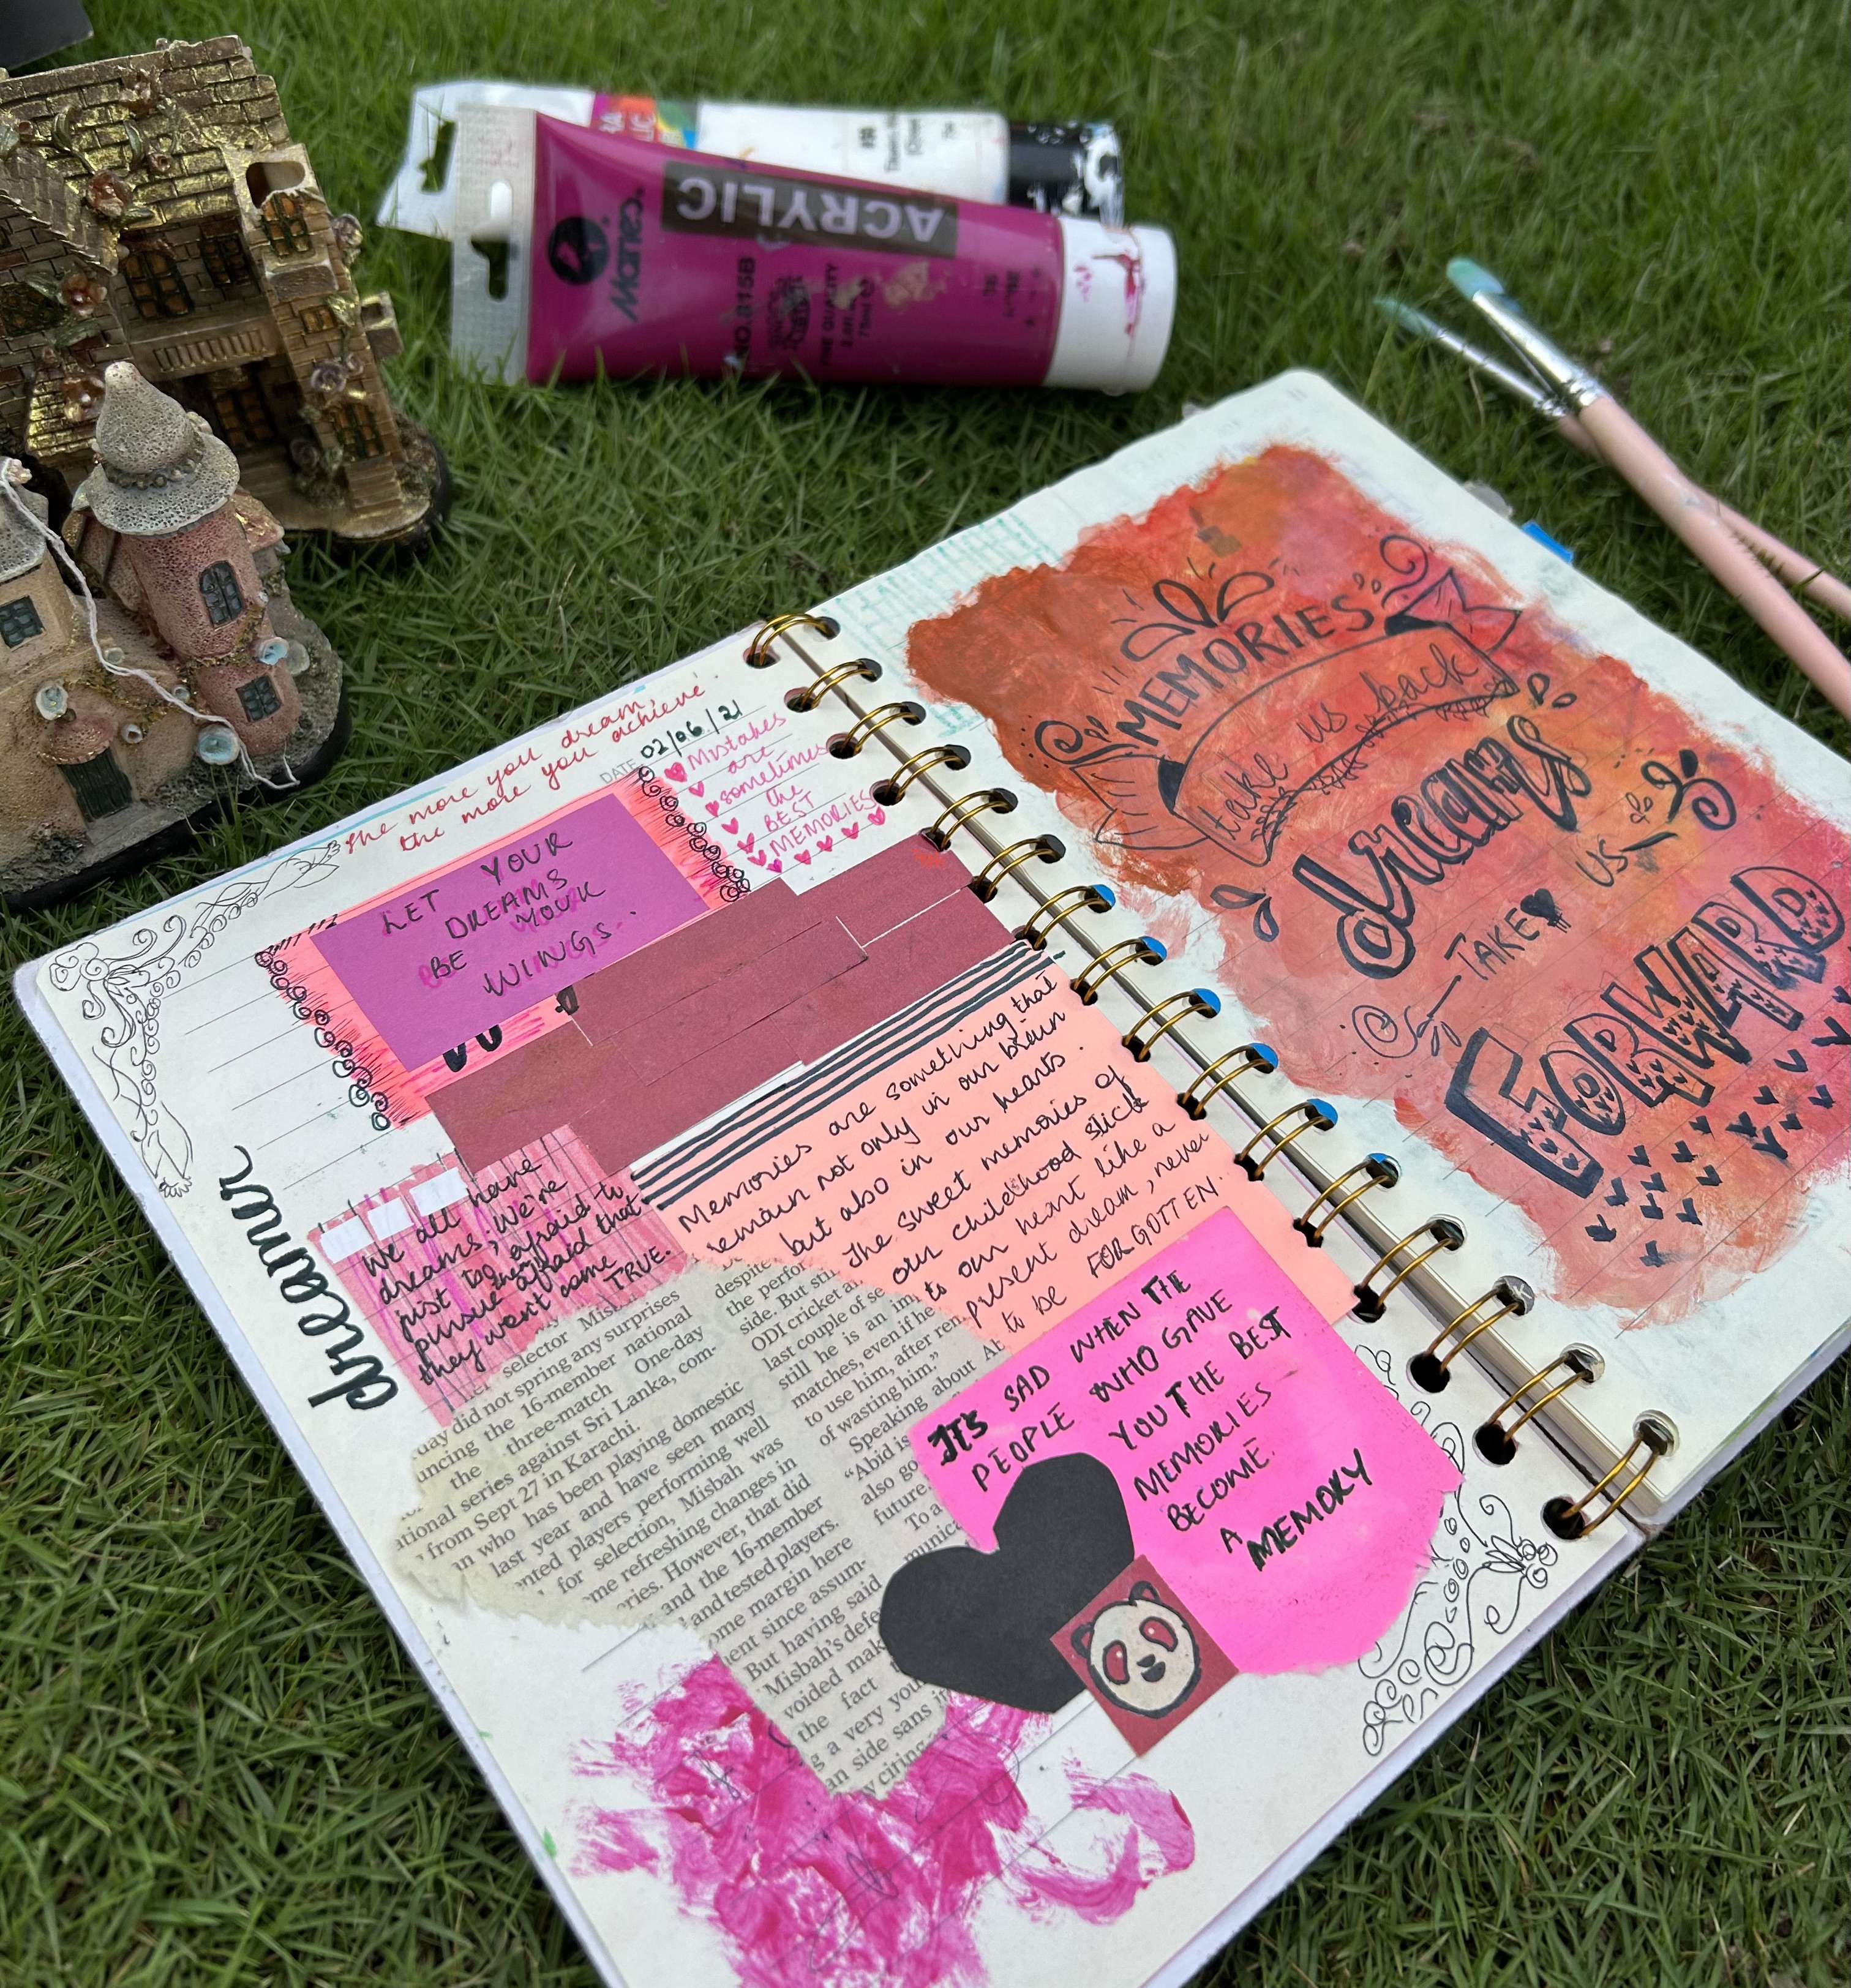 Maries.
ACRYLIC
NO.815B
FINE QUALITY
The more you dream
the more you achieve
DATE 02/06/21
Mistakes
are
sometimes
the
BEST
MEMORIES
LET YOUR
DREAMS
BE YOUR
WINGS..
dreamer
We all have
dreams, we're
just too afraid to
pursue afraid that
they won't come
TRUE.
Memories are something that
remain not only in our brain
but also in our hearts.
The sweet memories of
our childhood stick
to our heart like a
present dream, never
to be FORGOTTEN.
selector Misb
uay did not spring any surprises
uncing the 16-member national
the three-match One-day
ational series against Sri Lanka, com-
from Sept 27 in Karachi.
an who has been playing domestic
last year and have seen many
ented players performing well
for selection, Misbah was
me refreshing changes in
eries. However, that did
and the 16-member
and tested players.
ome margin here
ent since assum-
But having said
Misbah's defe
voided mak
the fact
g a very you
an side sans it
y citing
despite
the perfor
side. But sti
ODI cricket a
last couple of se
still he is an im
matches, even if he
to use him, after ren
of wasting him."
Speaking about At
"Abid is
also go
future
To a
munic
IT'S SAD WHEN THE
PEOPLE WHO GAVE
YOU THE BEST
MEMORIES
BECOME.
A MEMORY
MEMORIES
take us back
dreams
TAKE US
FORWARD